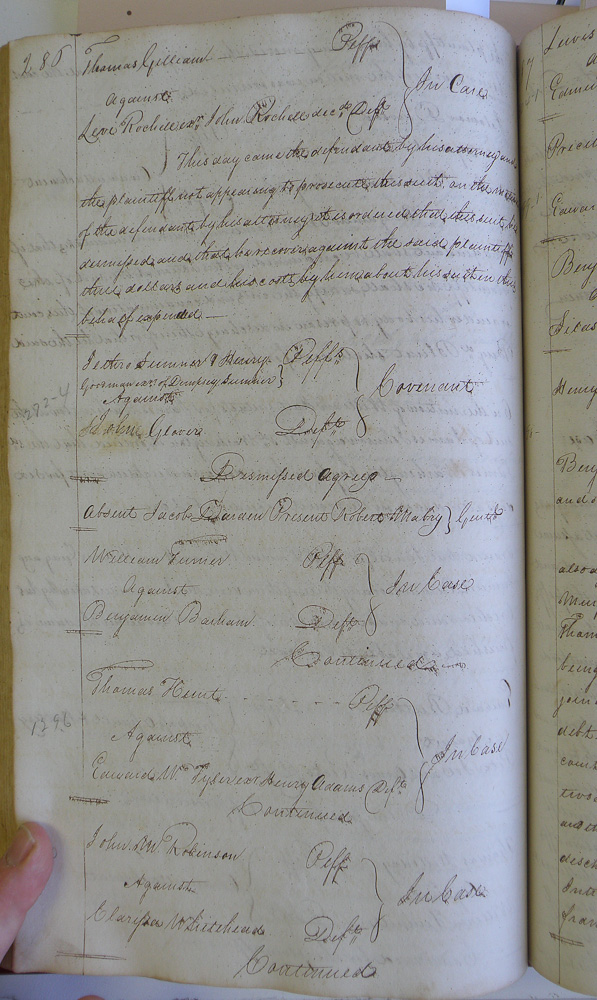 286
Thomas Gilliam Plff
against In Case
Levi Rochelle exr John Rochell decd Deft
This day came the defendant by his attorney and
the plaintiff not appearing to prosecute this suit, on the motion
of the defendant by his attorney it is ordered that this suit be
dismissed and that he recover against the said plaintiff
three dollars and his costs by him about his suit in this
behalf expended —
Jethro Sumner & Henry Plffs
Goodman exrs of Dempsey Sumner Covenant
Against
John Glover Deft
Dismissed agreed —
Absent Jacob Present Robert Mabry } Gent
William Turner Plff
Against In Case
Benjamin Barham Deft
Continued
Thomas Hunt Plff
Against In Case
Edward Wm Tyler exr Henry Adams Deft
Continued
John Robinson Plff
Against In Case
Clarissa Whitehead Deft
Continued